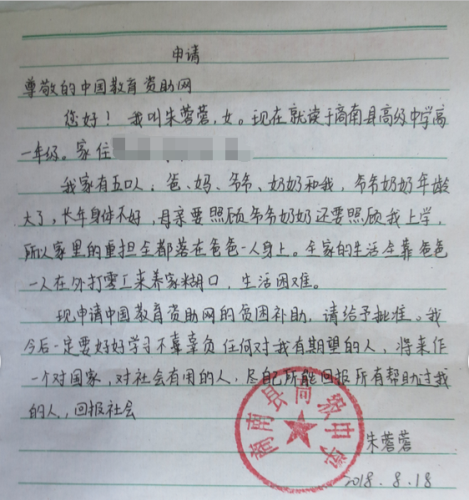 申请
尊敬的中国教育资助网
您好！我叫朱蓉蓉,女。现在就读于商南县高级中学高
一年级。家住
我家有五口人，爸、妈、爷爷、奶奶和我，爷爷奶奶年龄
大了，长年身体不好，母亲要照顾爷爷奶奶还要照顾我上学，
所以家里的重担全都落在爸爸一人身上。全家的生活全靠爸爸
一人在外打零工来养家糊口，生活困难。
现申请中国教育资助网的贫困补助，请给予批准。我
今后一定要好好学习不辜负任何对我有期望的人，将来作
一个对国家，对社会有用的人，尽自己所能回报所有帮助过我
的人，回报社会
商南县高级中学
朱蓉蓉
2018.8.18